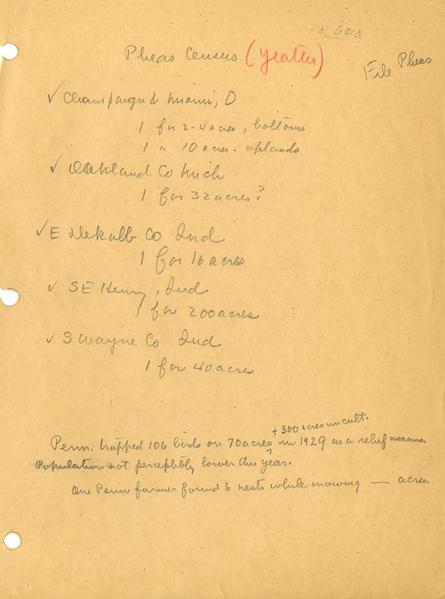 Pheas Census (Yeatter)
File Pheas
✓ Champaign & Miami, O
1 for 2-4 acres, bottoms
1 " 10 acres - uplands
✓ Oakland Co Mich
1 for 32 acres?
✓ E Dekalb Co Ind
1 for 16 acres
✓ SE Henry, Ind
1 for 200 acres
✓ S Wayne Co Ind
1 for 40 acres
+ 300 acres uncult.
Penn. trapped 106 birds on 70 acres in 1929 as a relief measure.
Population not perceptibly lower this year.
One Penn farmer found 6 nests while mowing — acres.